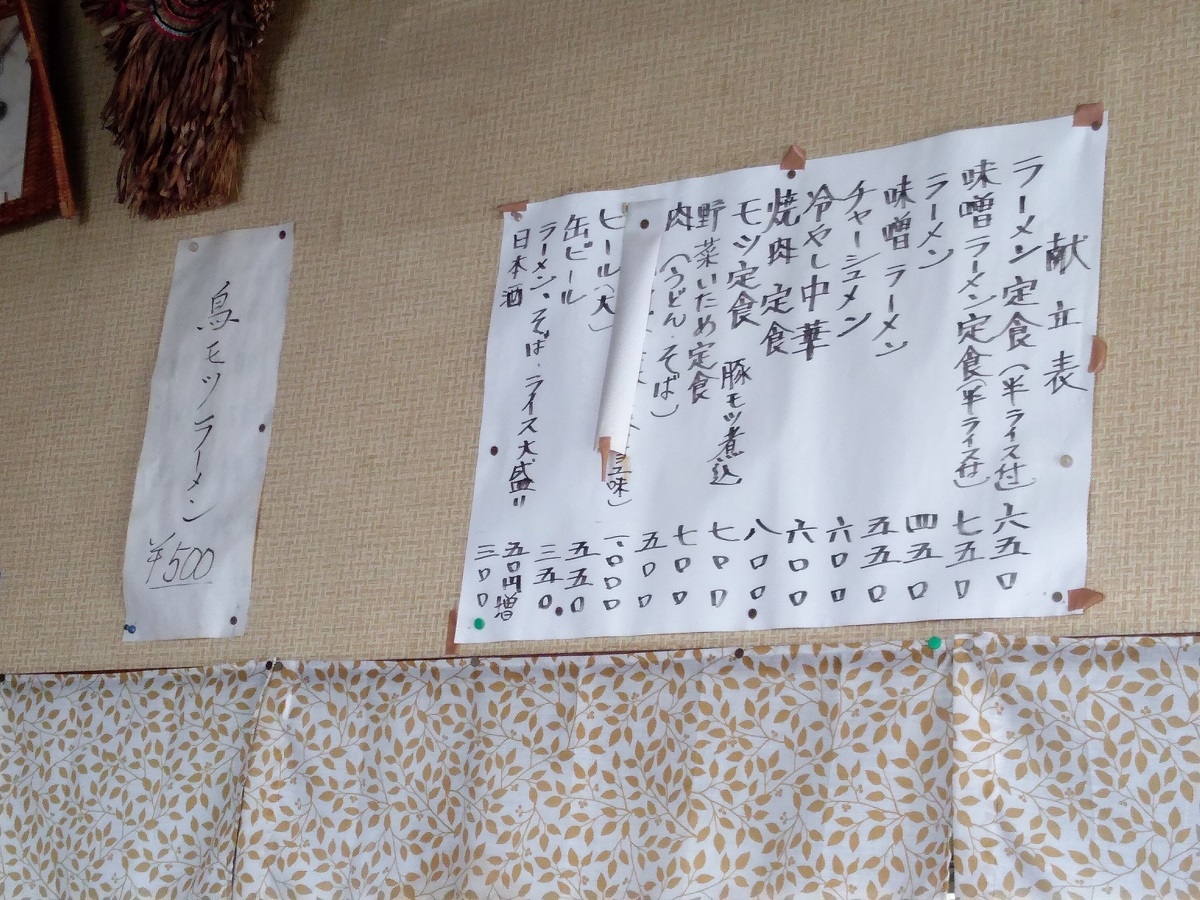 献立表
ラーメン定食(半ライス付) 六五〇
味噌ラーメン定食(半ライス付) 七五〇
ラーメン 四五〇
味噌ラーメン 五五〇
チャーシュメン 六〇〇
冷やし中華 六〇〇
焼肉定食 八〇〇
モツ定食 豚モツ煮込 七〇〇
野菜いため定食 七〇〇
肉(うどん・そば) 五〇〇
味) 一、〇〇〇
ビール(大) 五五〇
缶ビール 三五〇
ラーメン、そば、ライス大盛り 五〇円増
日本酒 三〇〇
鳥モツラーメン
¥500